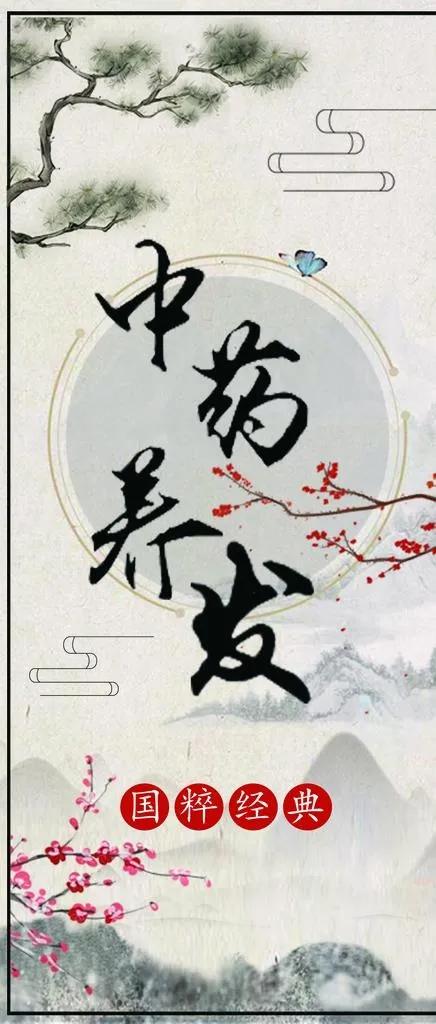 中药养发
国粹经典